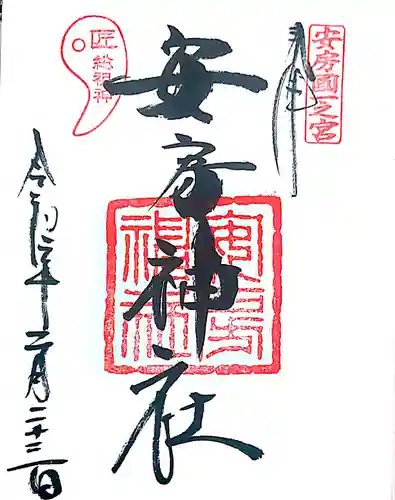 奉拝
安房國一之宮
匠総祖神
安房神社
安房神社
令和二年二月二十三日